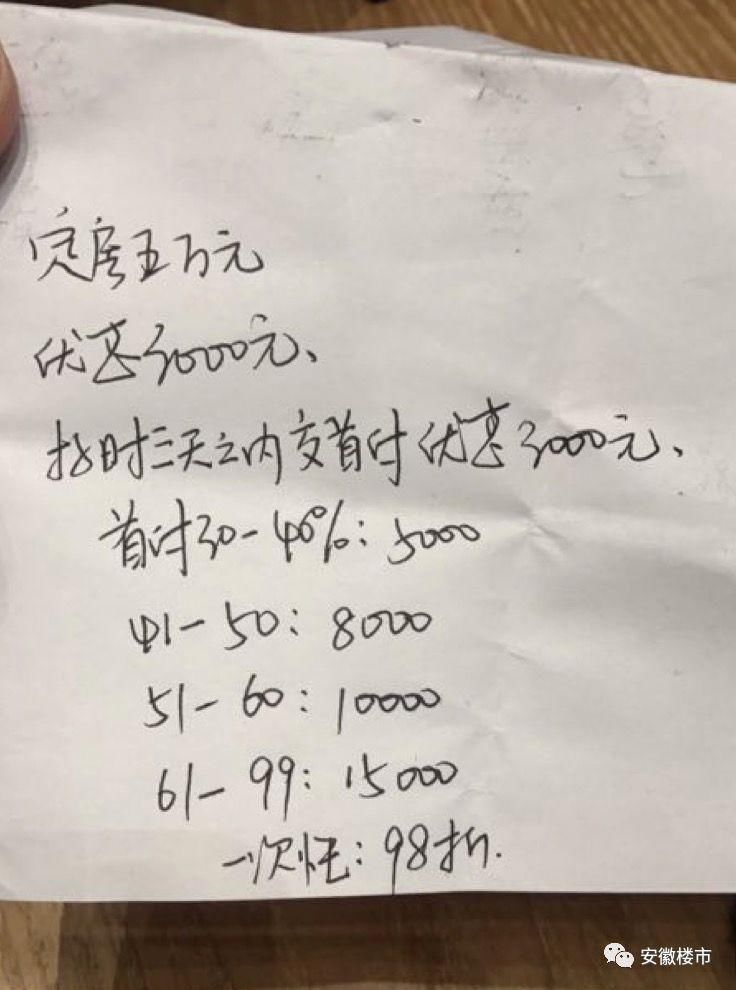 定房五万元
优惠3000元、
按时三天之内交首付优惠3000元、
首付30-40%:5000
41-50:8000
51-60:10000
61-99:15000
一次性:98折.
安徽楼市